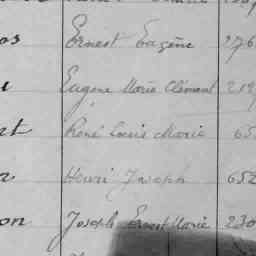 os Ernest Eugène 276
Eugène Marie Clément 219
rt René Louis Marie 65
Henri Joseph 652
on Joseph Ernest Marie 230